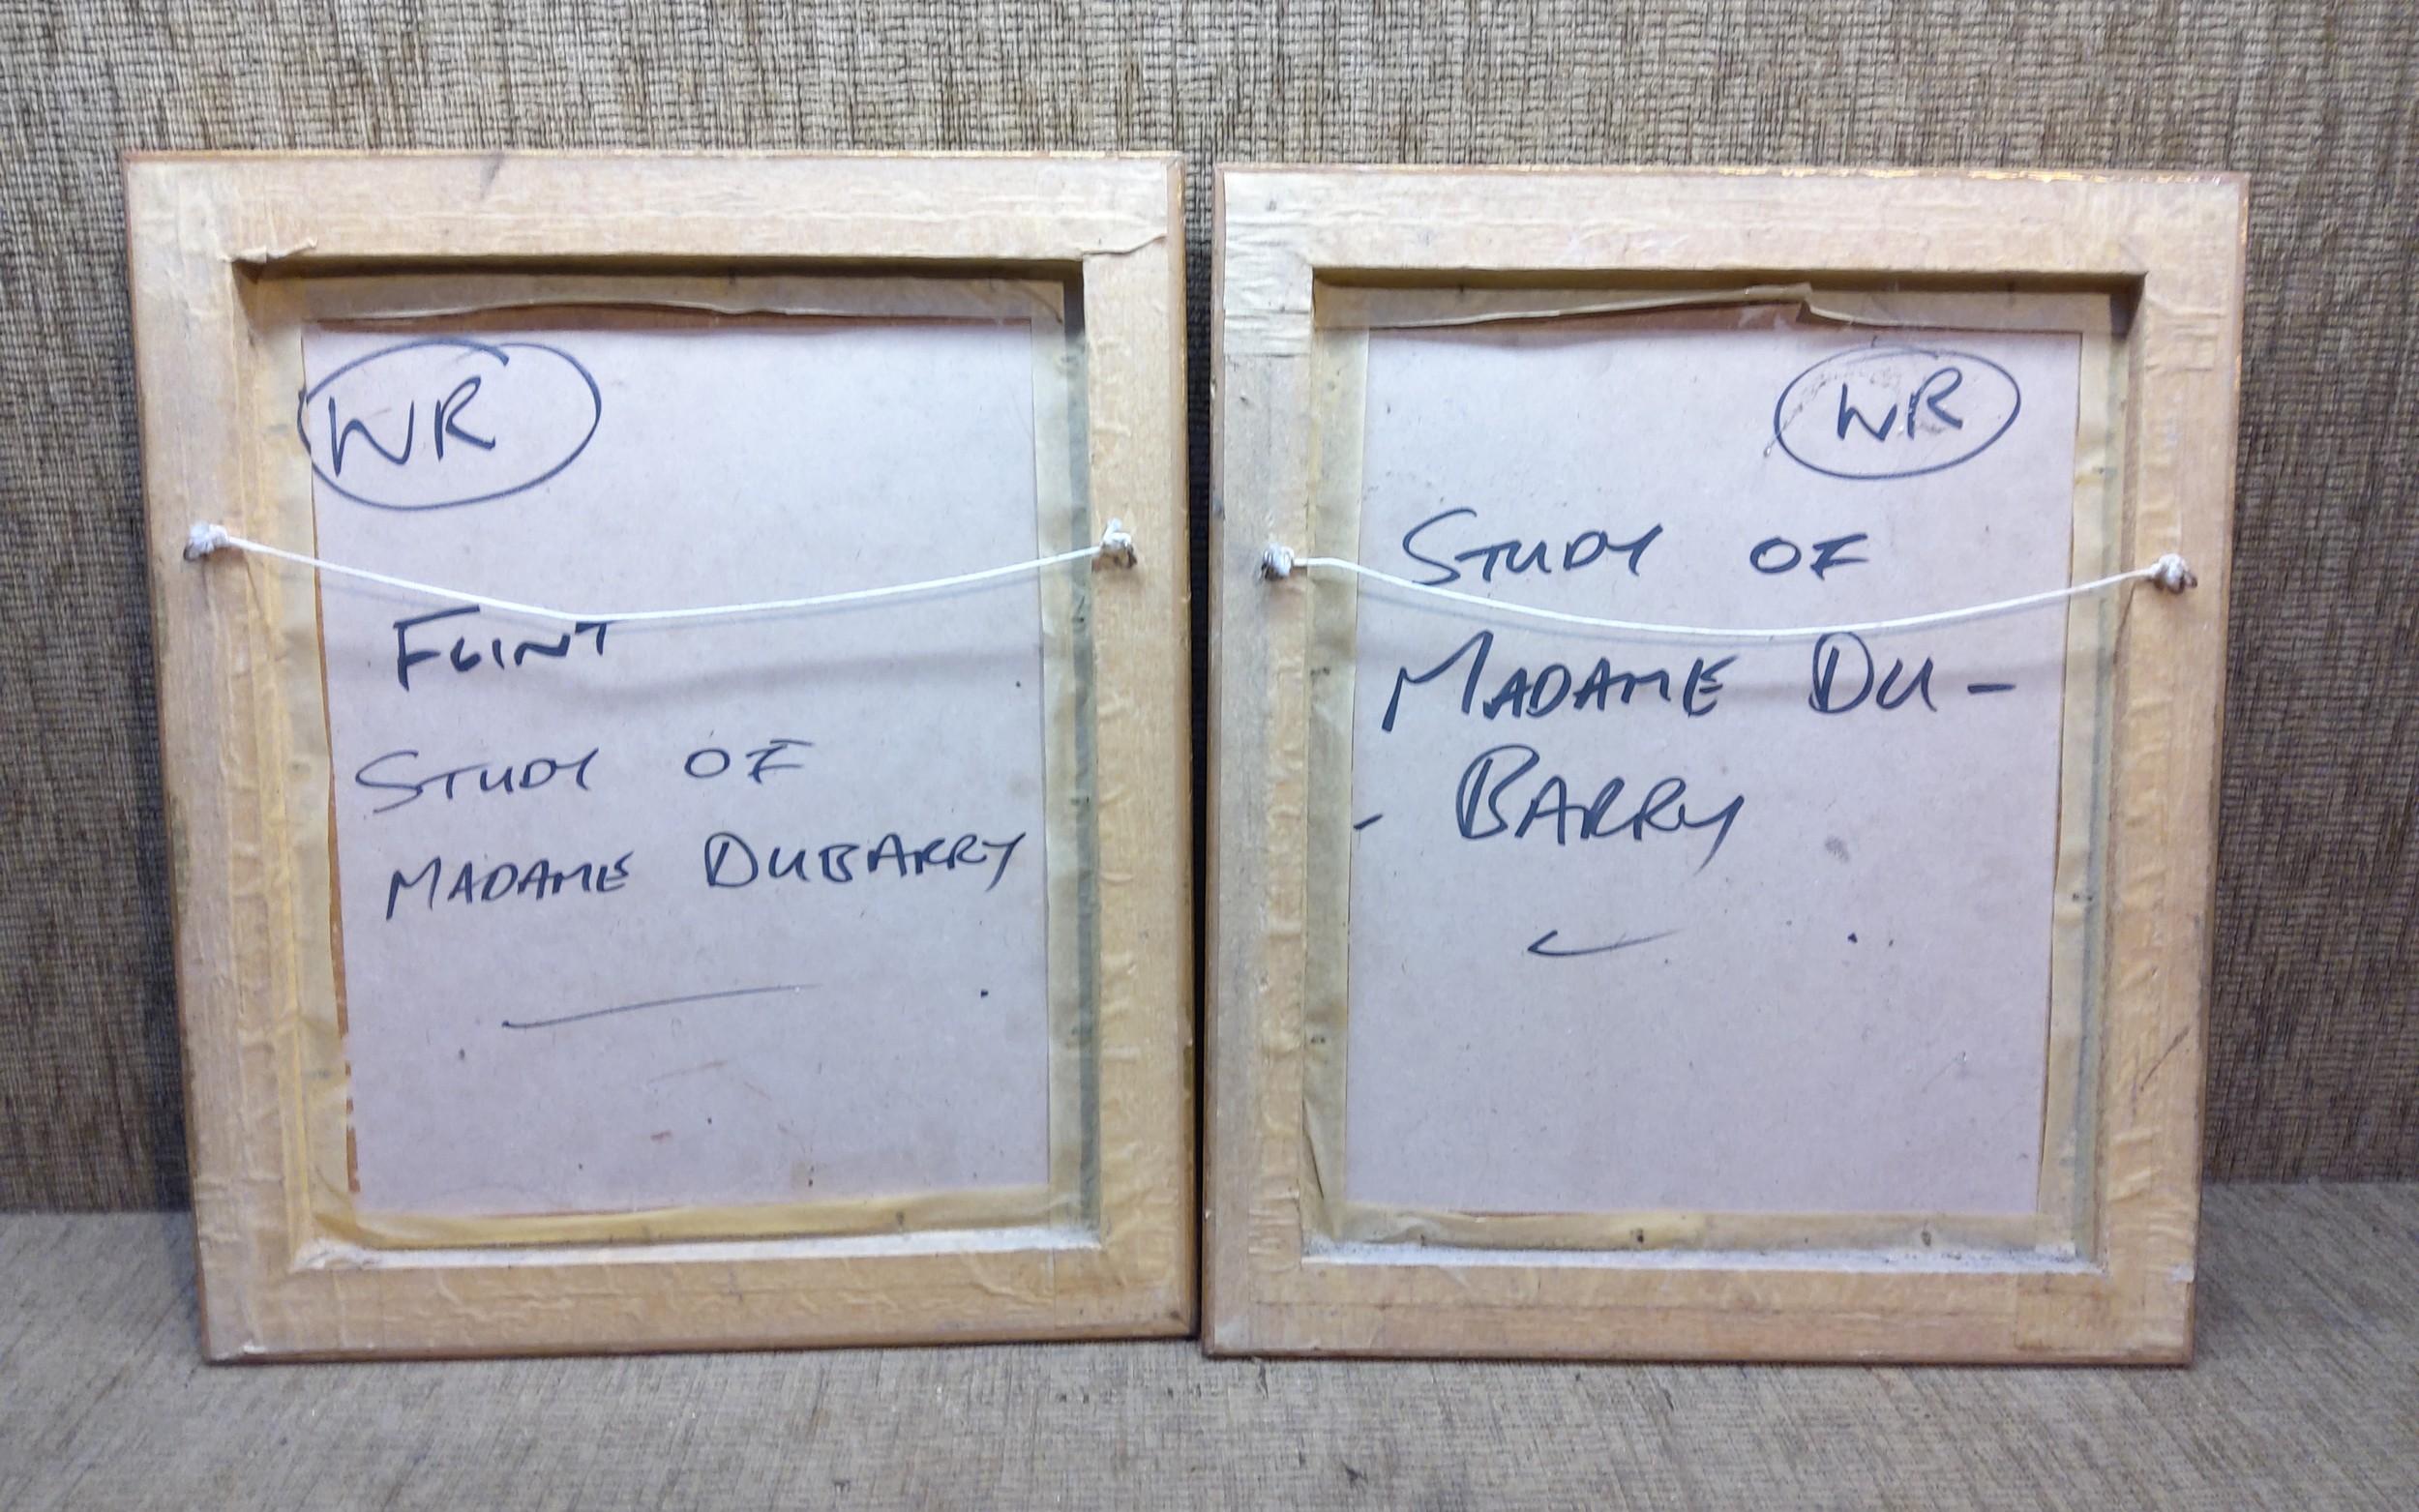 WR
FLINT
STUDY OF
MADAME DUBARRY
WR
STUDY OF
MADAME DU-
- BARRY